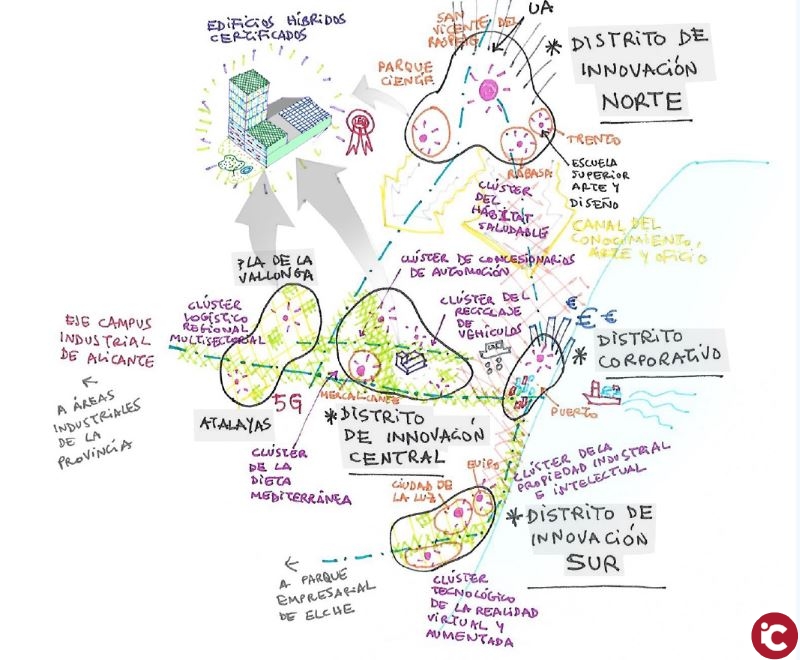 EDIFICIOS HÍBRIDOS
CERTIFICADOS
SAN
VICENTE DEL
RASPEIG
UA
* DISTRITO DE
INNOVACIÓN
NORTE
PARQUE
CIENTÍF.
TRENTO
RABASA
ESCUELA
SUPERIOR
ARTE Y
DISEÑO
CLÚSTER
DEL
HÁBITAT
SALUDABLE
CANAL DEL
CONOCIMIENTO,
ARTE Y OFICIO
PLA DE LA
VALLONGA
CLÚSTER DE CONCESIONARIOS
DE AUTOMOCIÓN
CLÚSTER
LOGÍSTICO
REGIONAL
MULTISECTORIAL
CLÚSTER DEL
RECICLAJE
DE
VEHÍCULOS
EJE CAMPUS
INDUSTRIAL
DE ALICANTE
A ÁREAS
INDUSTRIALES
DE LA
PROVINCIA
€
€ €
* DISTRITO
CORPORATIVO
PUERTO
MERCALICANTE
5G
ATALAYAS
* DISTRITO
DE INNOVACIÓN
CENTRAL
CLÚSTER
DE LA
DIETA
MEDITERRÁNEA
EUIPO
CIUDAD DE
LA LUZ
CLÚSTER DE LA
PROPIEDAD INDUSTRIAL
E INTELECTUAL
* DISTRITO DE
INNOVACIÓN
SUR
A PARQUE
EMPRESARIAL
DE ELCHE
CLÚSTER
TECNOLÓGICO
DE LA REALIDAD
VIRTUAL Y
AUMENTADA